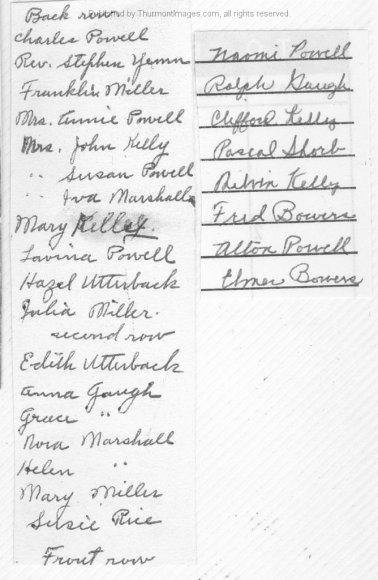 Published by ThurmontImages.com, all rights reserved.
Back row
Charles Powell
Rev. Stephen
Franklin Miller
Mrs. Annie Powell
Mrs. John Kelly
" Susan Powell
" Iva Marshall
Mary Kelley.
Lavina Powell
Hazel Utterback
Julia Miller.
second row
Edith Utterback
Anna Gaugh
Grace "
Nora Marshall
Helen "
Mary Miller
Susie Rice
Front row
Naomi Powell
Ralph Gaugh
Clifford Kelly
Pascal Shorb
Melvin Kelly
Fred Bowers
Alton Powell
Elmer Bowers